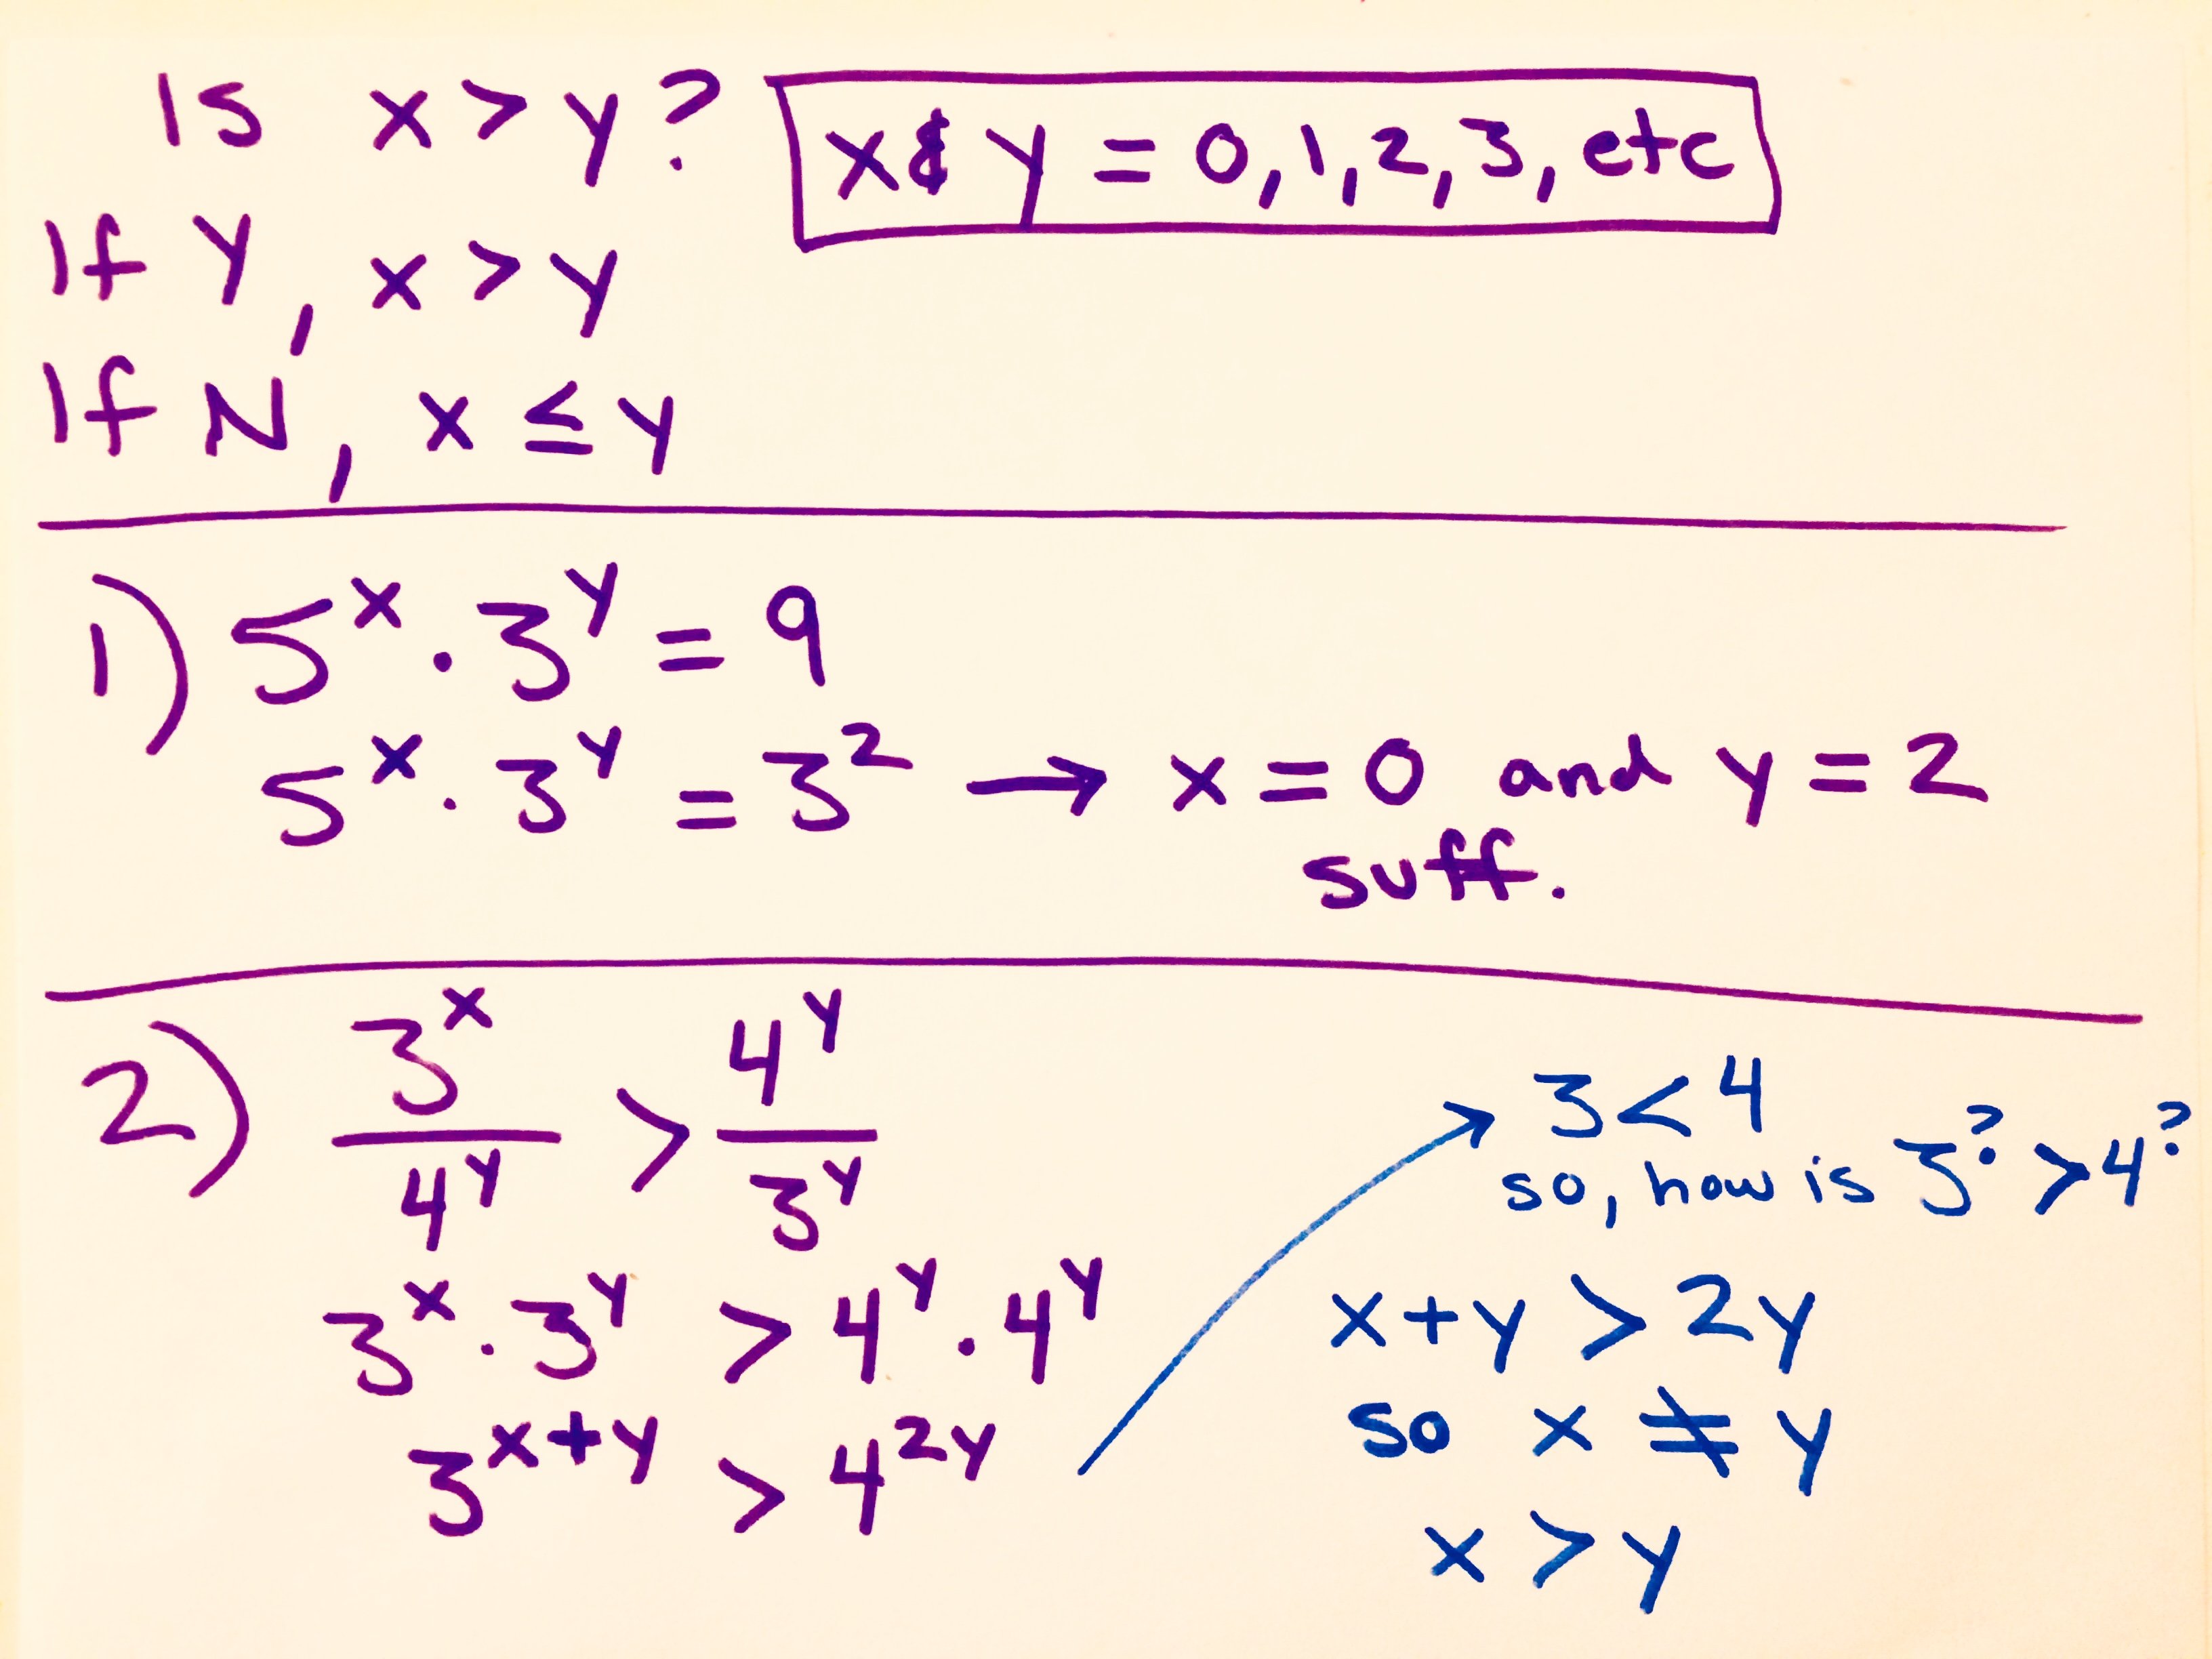 Is x > y?
x & y = 0, 1, 2, 3, etc
If Y, x > y
If N, x ≤ y
1) 5^x · 3^y = 9
5^x · 3^y = 3^2 → x = 0 and y = 2
suff.
2) 3^x/4^y > 4^y/3^y
3^x · 3^y > 4^y · 4^y
3^(x+y) > 4^(2y)
3 < 4
so, how is 3^? > 4^?
x + y > 2y
so x ≠ y
x > y